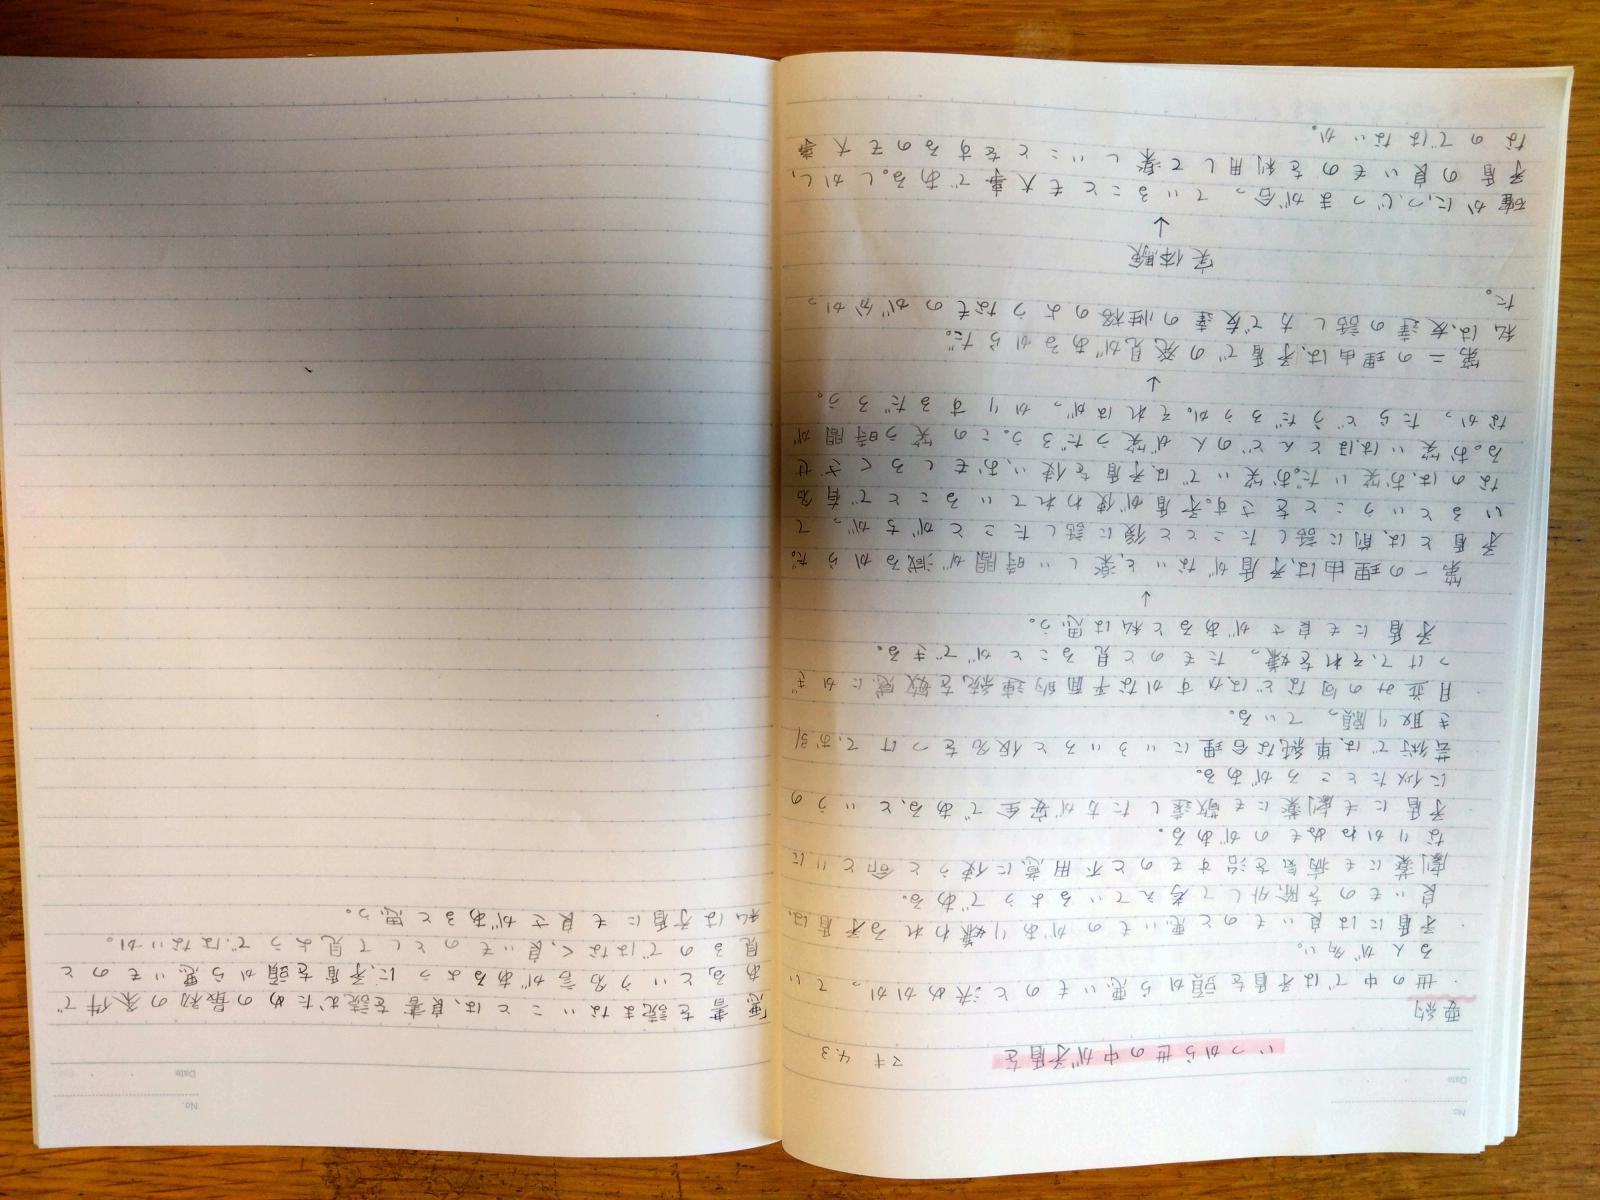 No.
Date
いつから世の中が矛盾を マキ 4.3
要約
・世の中では矛盾を頭から悪いものと決めかかってい
る人が多い。
・矛盾には良いものと悪いものがあり嫌われる矛盾は、
良いものを除外して考えているようである。
劇薬にも病気を治すものと不用意に使うと命とりに
なりかねぬものがある。
・矛盾にも劇薬にも敬遠した方が安全である、というの
に似たところがある。
芸術では、単純な合理にいろいろと仮名をつけて、お引
き取り願っている。
・月並みの句などは、かすかな平面的連続を敏感にかぎ
つけて、それを嫌ったものと見ることができる。
矛盾にも良さがあると私は思う。
↓
第一の理由は、矛盾がないと、楽しい時間が減るからだ。
矛盾とは、前に話したことと後に話したことがちがって
いるということをさす。矛盾が使われていることで有名
なのは、お笑いだ。お笑いでは、矛盾を使い、おもしろくさせ
る。お笑いは、ほとんどの人が笑うだろう。この笑う時間が
なかったらどうだろうか。それはがっかりするだろう。
↓
第二の理由は、矛盾での発見があるからだ。
私は、友達の話し方で友達の性格のようなものが分かっ
た。
実体験
↓
確かに、つじつまが合っていることも大事である。しかし、
矛盾の良いものを利用して楽しいことをするのも大事
なのではないか。
No.
Date
「悪書を読まないことは、良書を読むための最初の条件で
ある」という名言があるように、矛盾を頭から悪いものと
見るのではなく、良いものとして見ようではないか。
私は矛盾にも良さがあると思う。